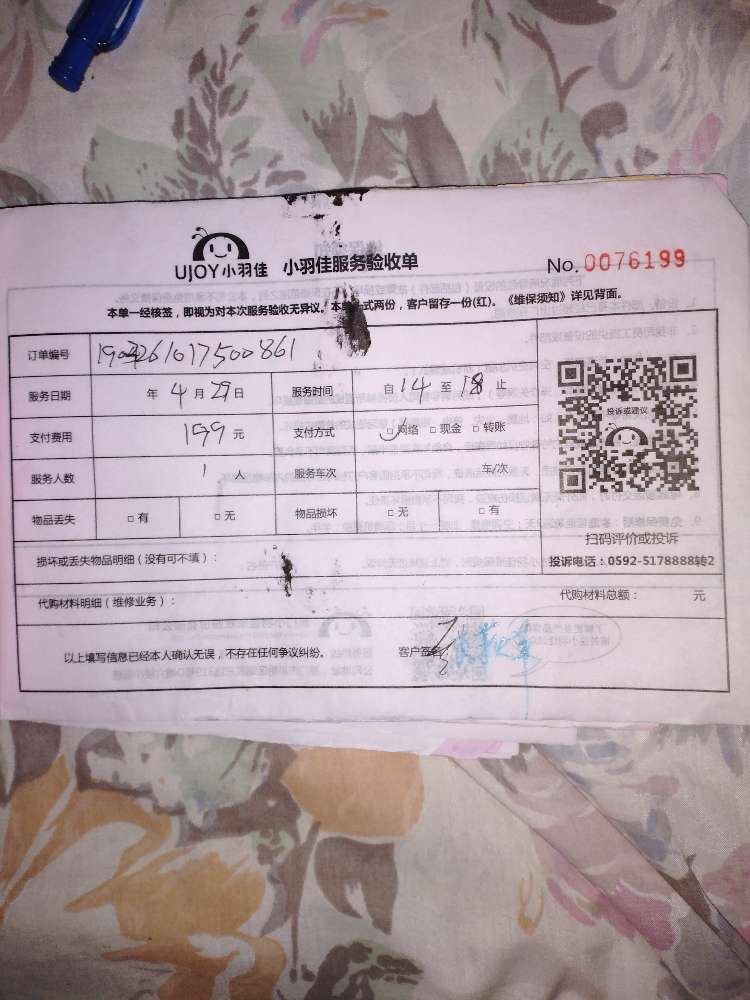 UJOY小羽佳 小羽佳服务验收单 No. 0076199
本单一经核签，即视为对本次服务验收无异议。本单一式两份，客户留存一份(红)。《维保须知》详见背面。
订单编号
服务日期 年 4 月 29 日 服务时间 自 14 至 18 止
支付费用 199 元 支付方式 □ 网络 □ 现金 □ 转账
投诉或建议
服务人数 1 人 服务车次 车/次
物品丢失 □ 有 □ 无 物品损坏 □ 无 □ 有
扫码评价或投诉
损坏或丢失物品明细（没有可不填）：
投诉电话：0592-5178888转2
代购材料明细（维修业务）： 代购材料总额： 元
以上填写信息已经本人确认无误，不存在任何争议纠纷。 客户签名